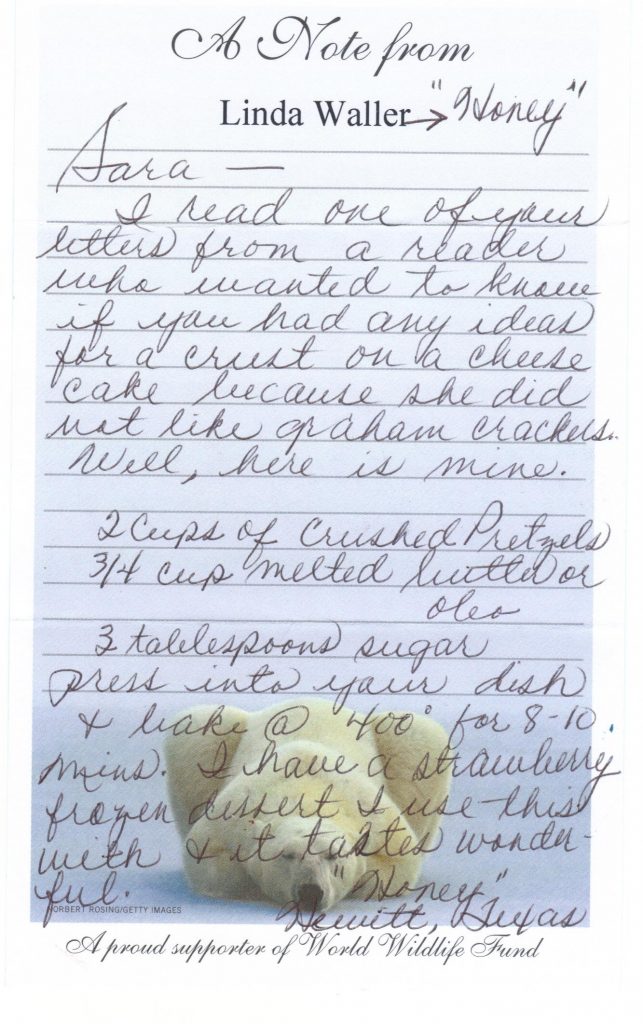 A Note from
Linda Waller → "Honey"
Sara —
I read one of your
letters from a reader
who wanted to know
if you had any ideas
for a crust on a cheese
cake because she did
not like graham crackers.
Well, here is mine.
2 Cups of Crushed Pretzels
3/4 cup melted butter or
oleo
3 tablespoons sugar
press into your dish
& bake @ 400° for 8-10
mins. I have a strawberry
frozen dessert I use this
with & it tastes wonder-
ful.
"Honey"
NORBERT ROSING/GETTY IMAGES
Hewitt, Texas
A proud supporter of World Wildlife Fund